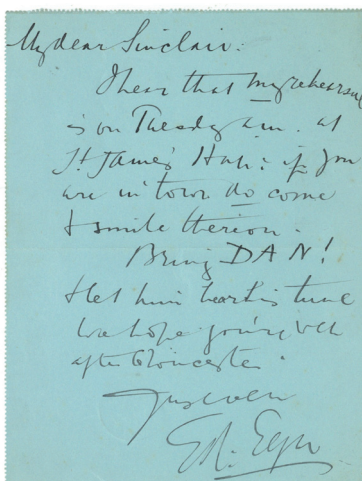 My dear Sinclair:
I hear that my rehearsal
is on Tuesday a.m. at
St. James's Hall: if you
are in town do come
& smile thereon.
Bring DAN!
& let him hear his tune
We hope you're well
after Gloucester.
Yours ever
Ed. Elgar